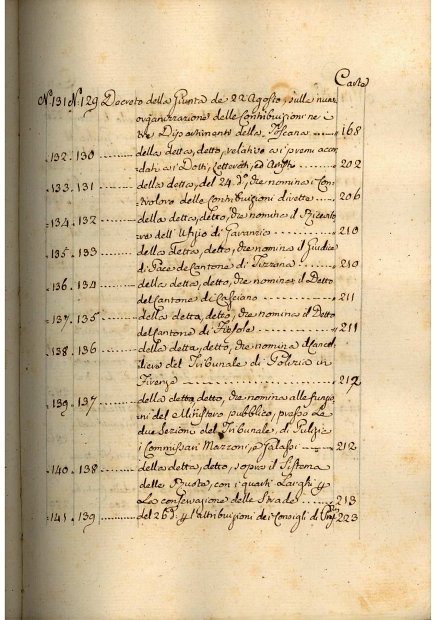 Carta
N.131 N.129 Decreto della Giunta de 22 Agosto, sulle nuove
organizzazione delle Contribuzioni ne i
tre Dipartimenti della Toscana ..... 168
132. 130 ......... della detta, detto, relativo a i premi accor
dati a i Dotti, Letterati, ed Artisti ... 202
133. 131 ......... della detta, del 24 d.o, che nomina i Con
trolori delle Contribuzioni dirette ...... 206
134. 132 ......... della detta, detto, che nomina il
dell'Ufizio di Garanzia ........ 210
135. 133 ......... della detta, detto, che nomina il Giudice
di Pace de Cantone di ........... 210
136. 134 ......... della detta, detto, che nomina il Detto
del Cantone di Casciano ........... 211
137. 135 ......... della detta, detto, che nomina il Detto
del Cantone di Fiesole ............... 211
138. 136 ......... della detta, detto, che nomina il Cancel
liere del Tribunale di Polizia in
Firenze ........................ 212
139. 137 ......... della detta, detto, che nomina alle funzio
ni del Ministero pubblico, presso Le
due Sezioni del Tribunale di Pulizia
i Commissari Mazzoni, e Falassi ..... 212
140. 138 ......... della detta, detto, sopra il Sistema
delle Ruote, con i quarti Larghi p
La conservazione delle Strade ....... 213
141. 139 ......... del 26 d.o, p l'attribuzioni de i Consigli di 223